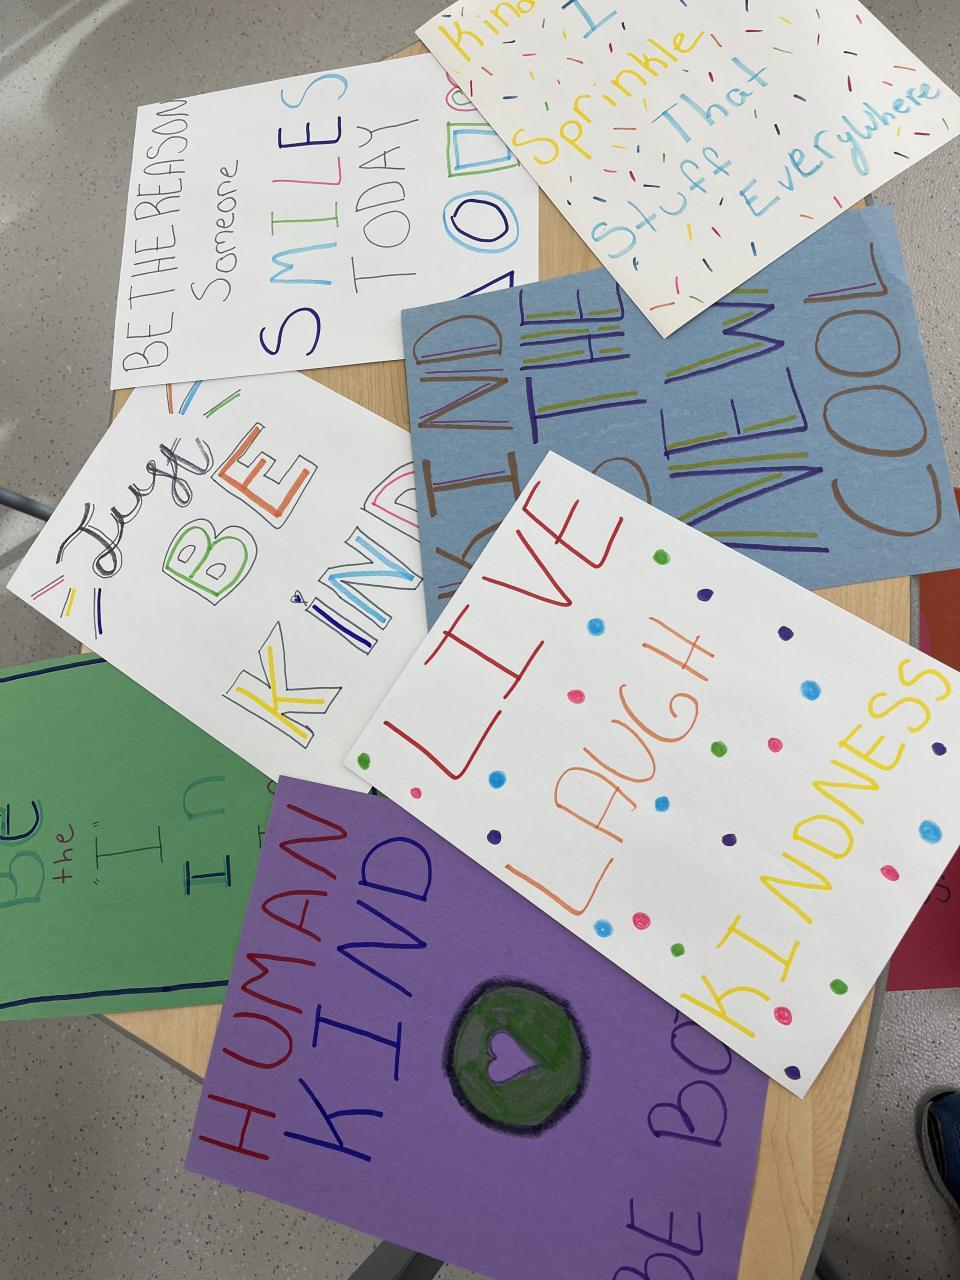 BE THE REASON
Someone
SMILES
TODAY
I
Sprinkle
That
Stuff
EveryWhere
KIND
THE
NEW
COOL
Just
BE
KIND
LIVE
LAUGH
KINDNESS
Be
the
"I"
In
HUMAN
KIND
BE BO